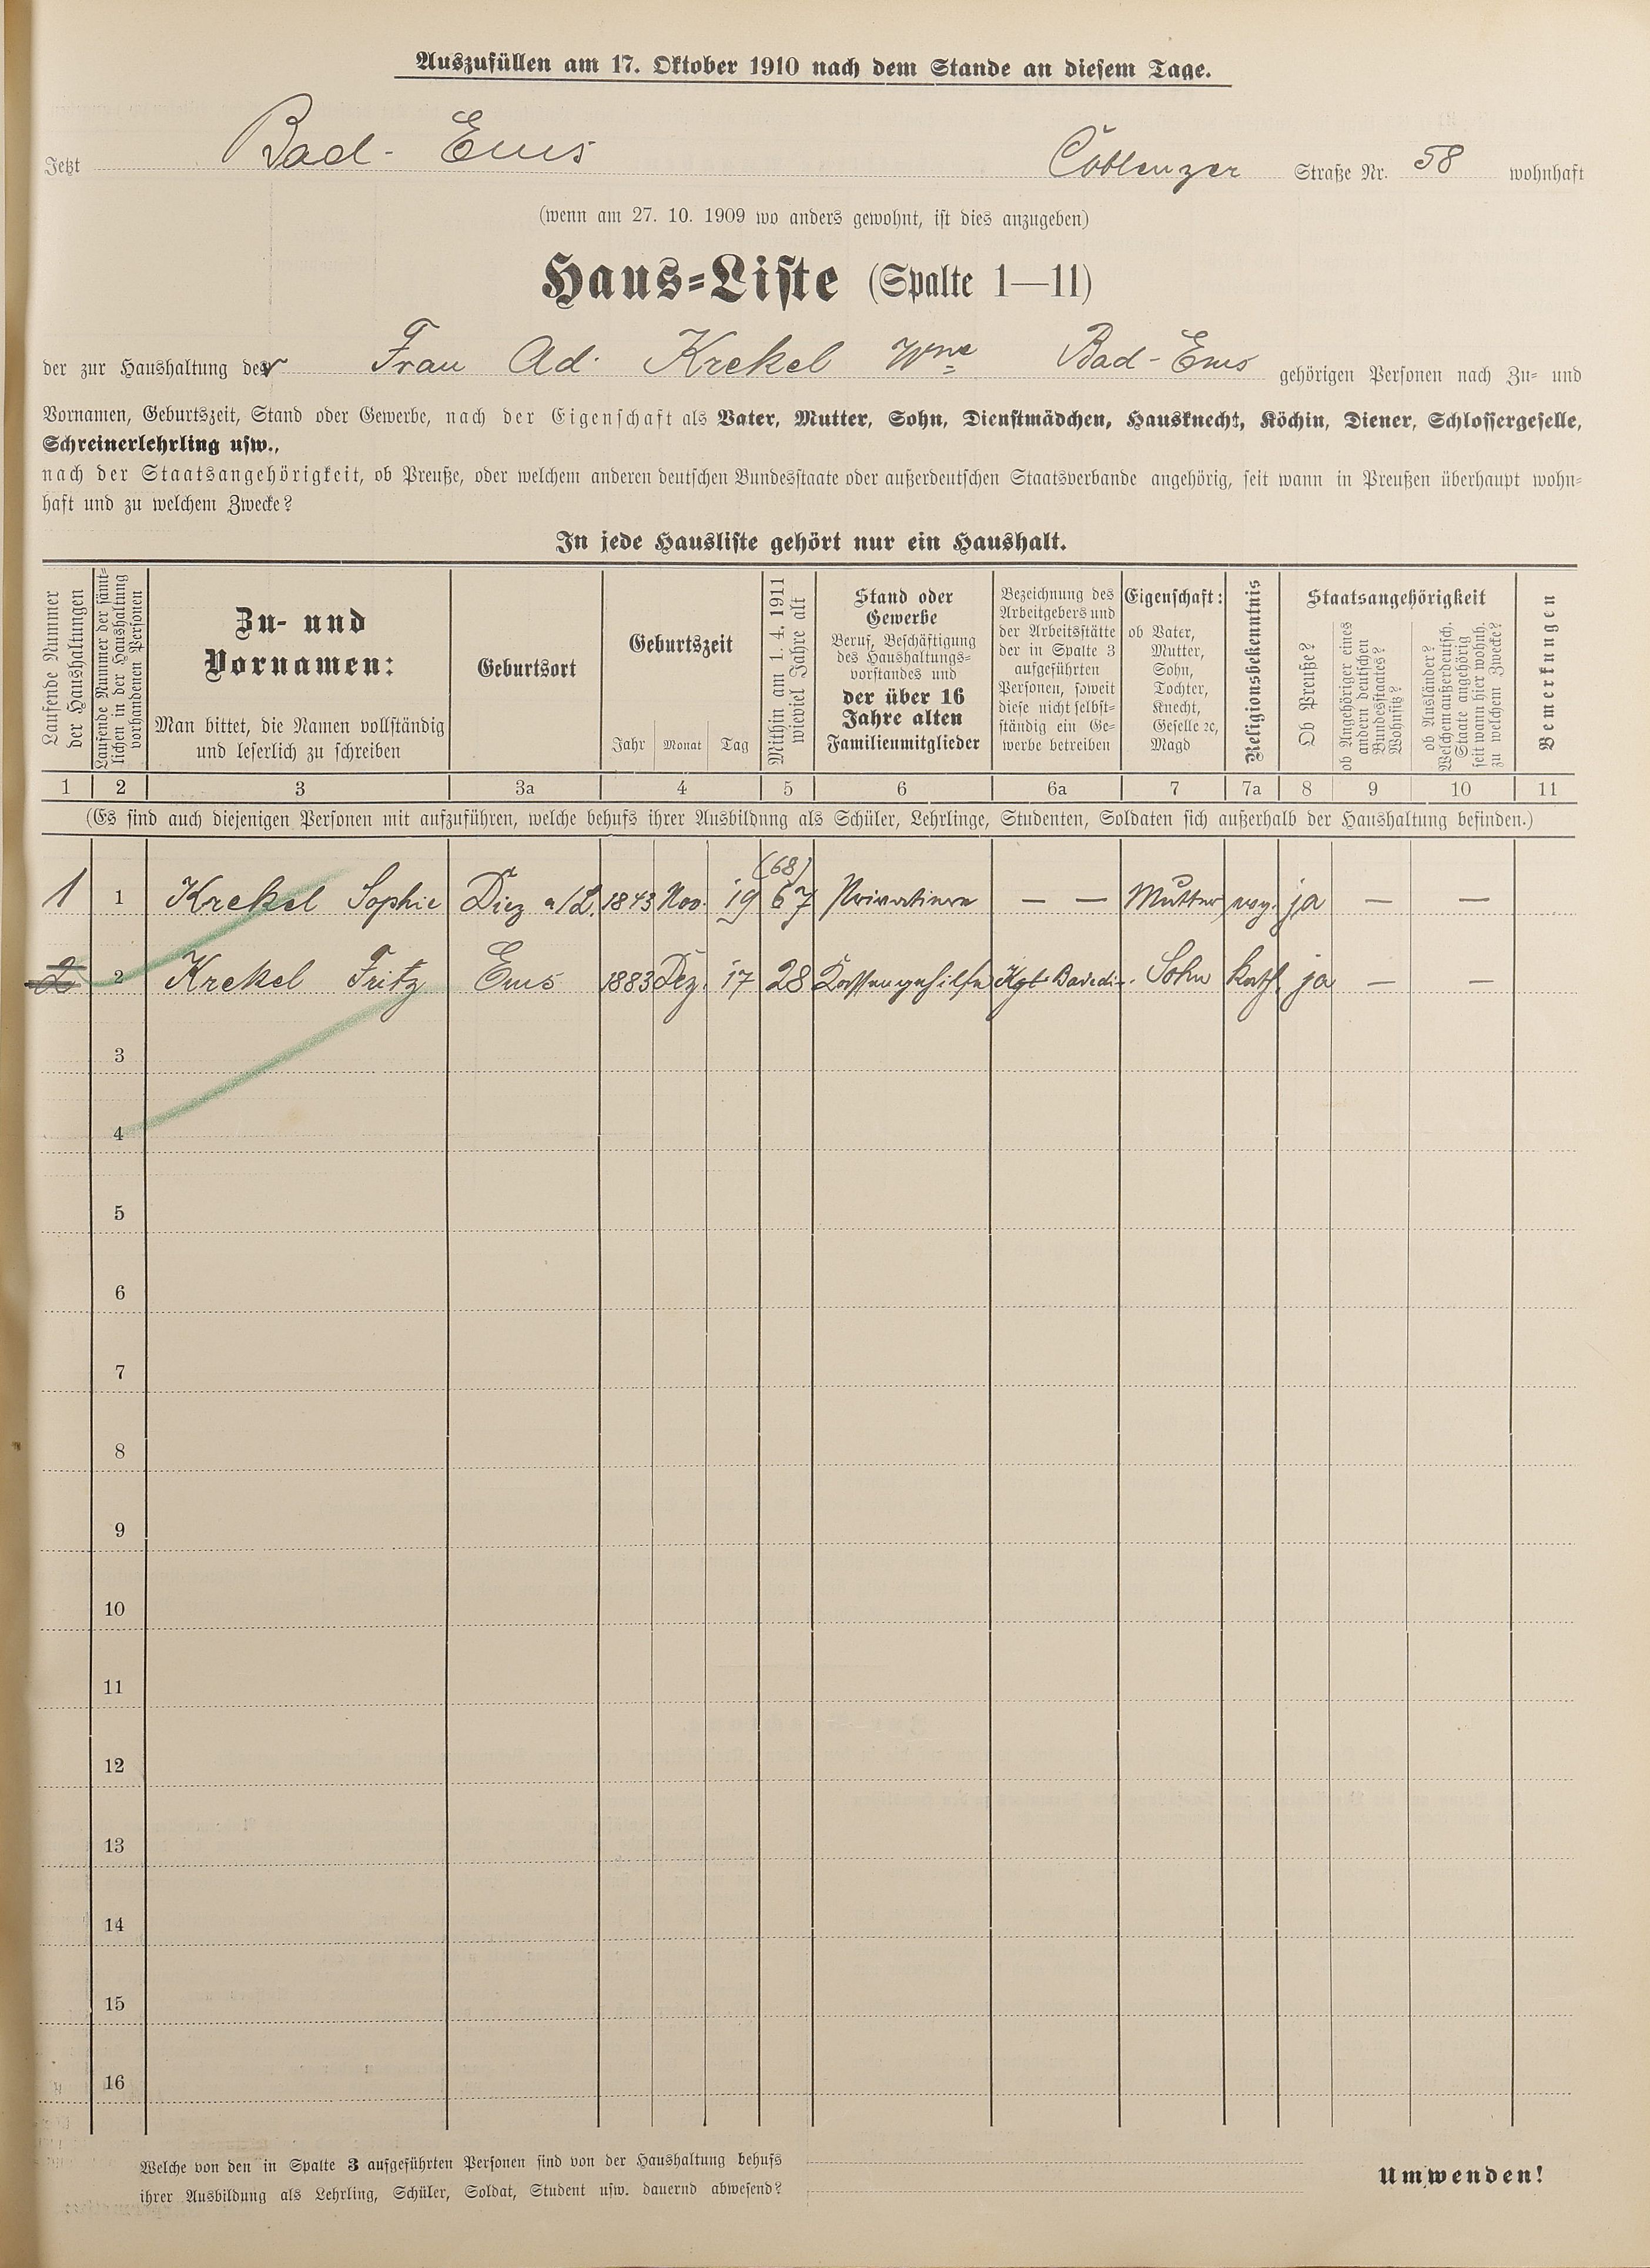 Auszufüllen am 17. Oktober 1910 nach dem Stande an diesem Tage.
Jetzt Bad-Ems Coblenzer Straße Nr. 58 wohnhaft
(wenn am 27. 10. 1909 wo anders gewohnt, ist dies anzugeben)
Haus-Liste (Spalte 1—11)
der zur Haushaltung der Frau Ad. Krekel Wne Bad-Ems gehörigen Personen nach Zu- und
Vornamen, Geburtszeit, Stand oder Gewerbe, nach der Eigenschaft als Vater, Mutter, Sohn, Dienstmädchen, Hausknecht, Köchin, Diener, Schlossergeselle,
Schreinerlehrling usw.,
nach der Staatsangehörigkeit, ob Preuße, oder welchem anderen deutschen Bundesstaate oder außerdeutschen Staatsverbande angehörig, seit wann in Preußen überhaupt wohn-
haft und zu welchem Zwecke?
In jede Hausliste gehört nur ein Haushalt.
Laufende Nummer
der Haushaltungen
Laufende Nummer der sämt-
lichen in der Haushaltung
vorhandenen Personen
Zu- und
Vornamen:
Man bittet, die Namen vollständig
und leserlich zu schreiben
Geburtsort
Geburtszeit
Jahr Monat Tag
Mithin am 1. 4. 1911
wieviel Jahre alt
Stand oder
Gewerbe
Beruf, Beschäftigung
des Haushaltungs-
vorstandes und
der über 16
Jahre alten
Familienmitglieder
Bezeichnung des
Arbeitgebers und
der Arbeitsstätte
der in Spalte 3
aufgeführten
Personen, soweit
diese nicht selbst-
ständig ein Ge-
werbe betreiben
Eigenschaft:
ob Vater,
Mutter,
Sohn,
Tochter,
Knecht,
Geselle ꝛc,
Magd
Religionsbekenntnis
Staatsangehörigkeit
Ob Preuße?
ob Angehöriger eines
andern deutschen
Bundesstaates?
Wohnsitz?
ob Ausländer?
Welchem außerdeutsch.
Staate angehörig
seit wann hier wohnh.
zu welchem Zwecke?
Bemerkungen
1 2 3 3a 4 5 6 6a 7 7a 8 9 10 11
(Es sind auch diejenigen Personen mit aufzuführen, welche behufs ihrer Ausbildung als Schüler, Lehrlinge, Studenten, Soldaten sich außerhalb der Haushaltung befinden.)
(68)
1 1 Krekel Sophie Diez a/L. 1843 Nov. 19 67 Privatiere — — Mutter evg. ja — —
2 2 Krekel Fritz Ems 1883 Dez. 17 28 Kassengehilfe Kgl. Badedir. Sohn kath. ja — —
3
4
5
6
7
8
9
10
11
12
13
14
15
16
Welche von den in Spalte 3 aufgeführten Personen sind von der Haushaltung behufs
ihrer Ausbildung als Lehrling, Schüler, Soldat, Student usw. dauernd abwesend?
Umwenden!